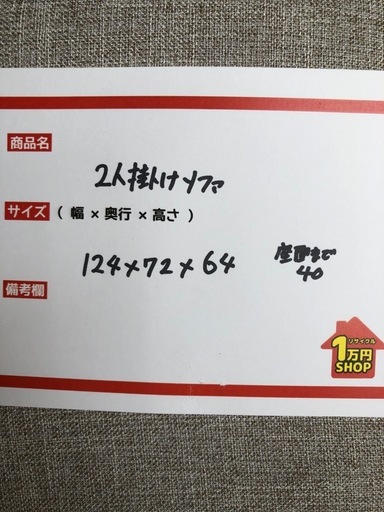 商品名
2人掛けソファ
サイズ ( 幅 × 奥行 × 高さ )
124×72×64
座面まで
40
備考欄
リサイクル
1万円
SHOP